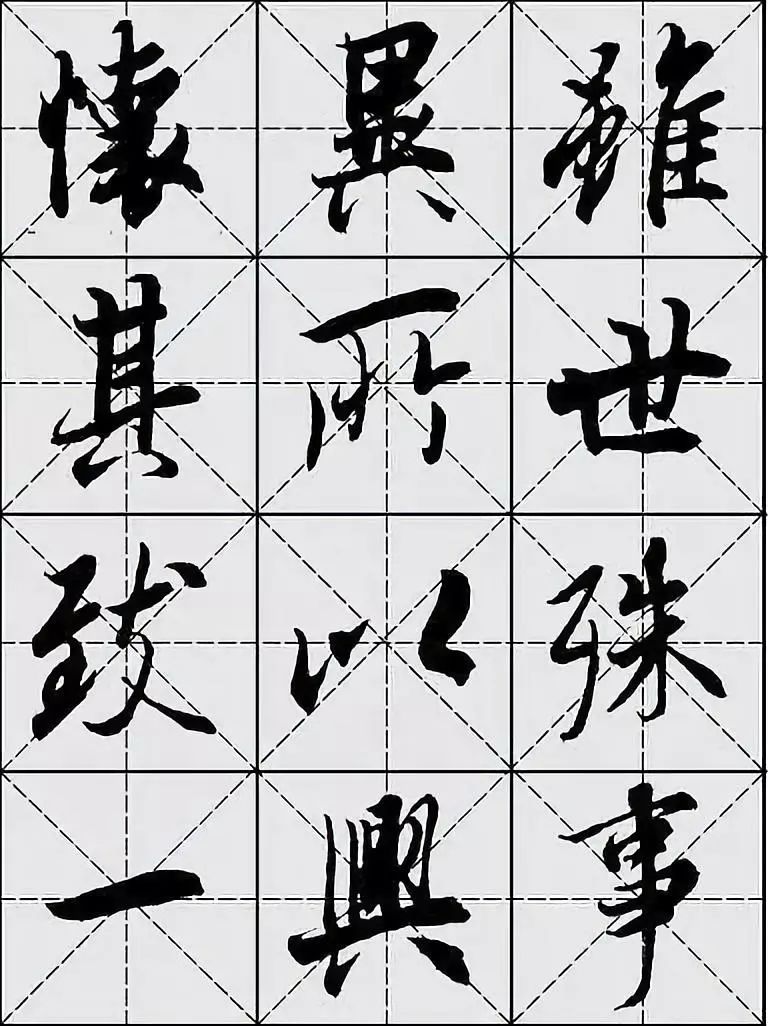 雖世殊事
異所以興
懷其致一